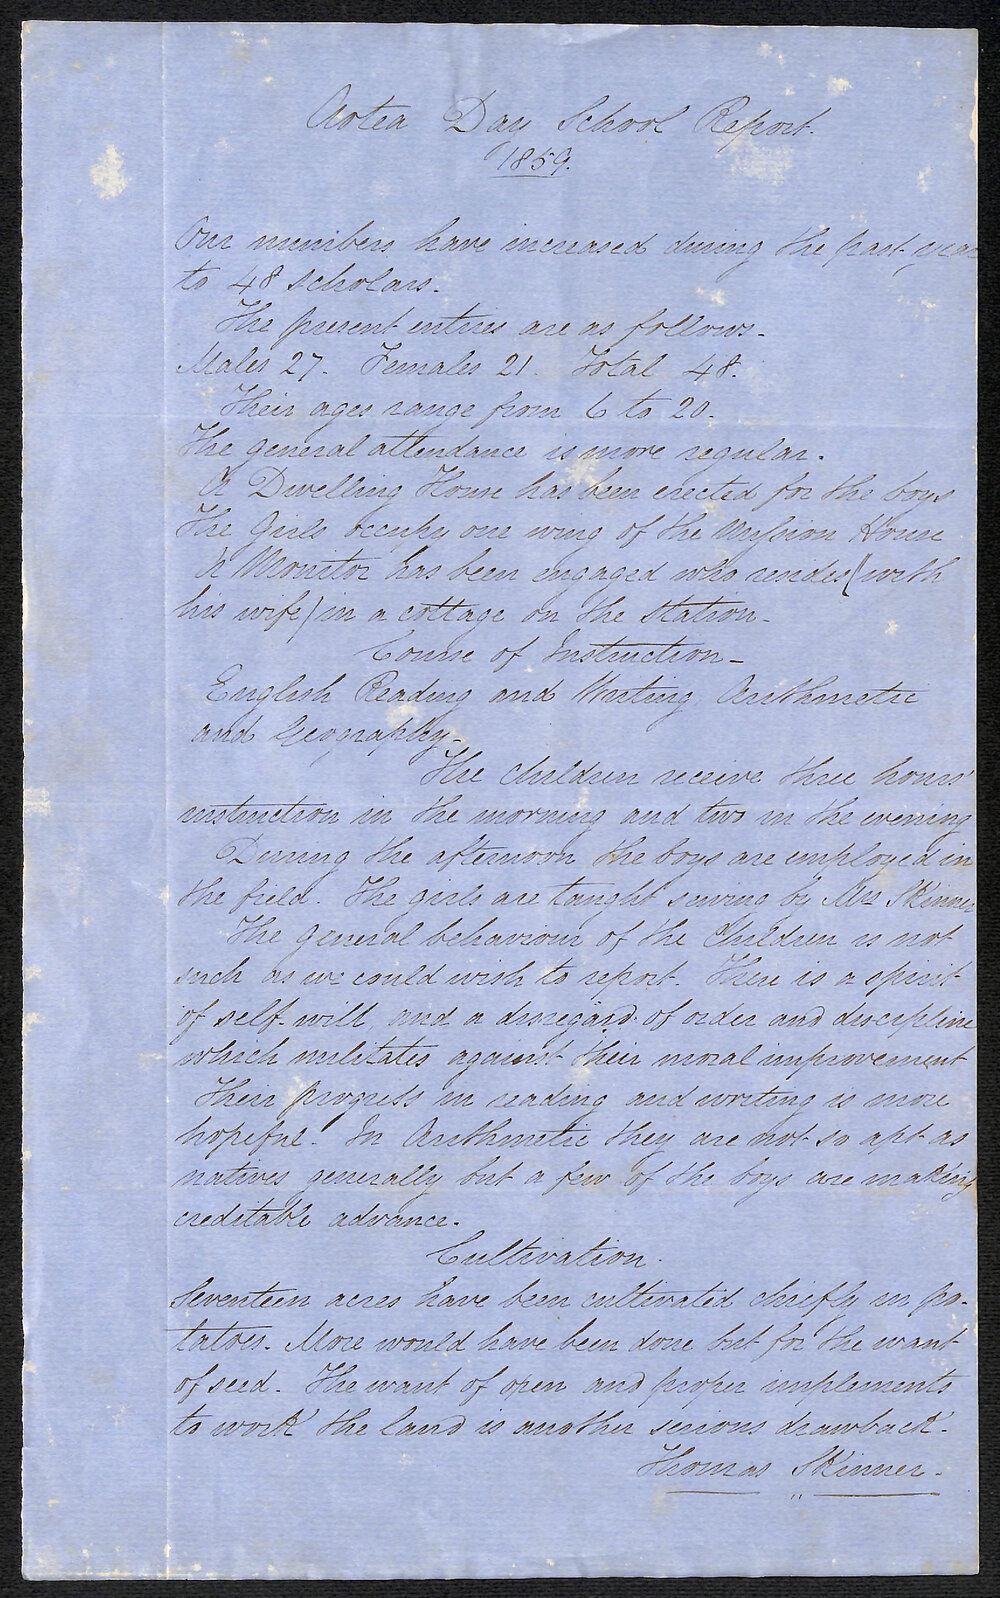 Aotea Day School Report.
1859.
Our numbers have increased during the past year
to 48 scholars.
The present entries are as follows.
Males 27. Females 21. Total 48.
Their ages range from 6 to 20.
The general attendance is more regular.
A Dwelling House has been erected for the boys
The Girls occupy one wing of the Mission House
A Monitor has been engaged who resides (with
his wife) in a cottage on the Station.
Course of Instruction.
English Reading and Writing, Arithmetic
and Geography.
The children receive three hours'
instruction in the morning and two in the evening
During the afternoon the boys are employed in
the field. The girls are taught sewing by Mrs Skinner
The general behaviour of the Children is not
such as we could wish to report. There is a spirit
of self-will, and a disregard of order and discipline
which militates against their moral improvement
Their progress in reading and writing is more
hopeful. In Arithmetic they are not so apt as
natives generally but a few of the boys are making
creditable advance.
Cultivation.
Seventeen acres have been cultivated chiefly in po-
tatoes. More would have been done but for the want
of seed. The want of open and proper implements
to work the land is another serious drawback.
Thomas Skinner.